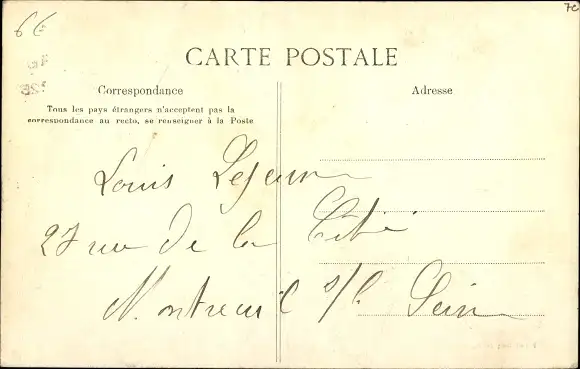 6€
7c
CARTE POSTALE
Correspondance
Adresse
Tous les pays étrangers n'acceptent pas la
correspondance au recto, se renseigner à la Poste
Louis Lejeune
27 rue de la Cité
Montreuil s/s